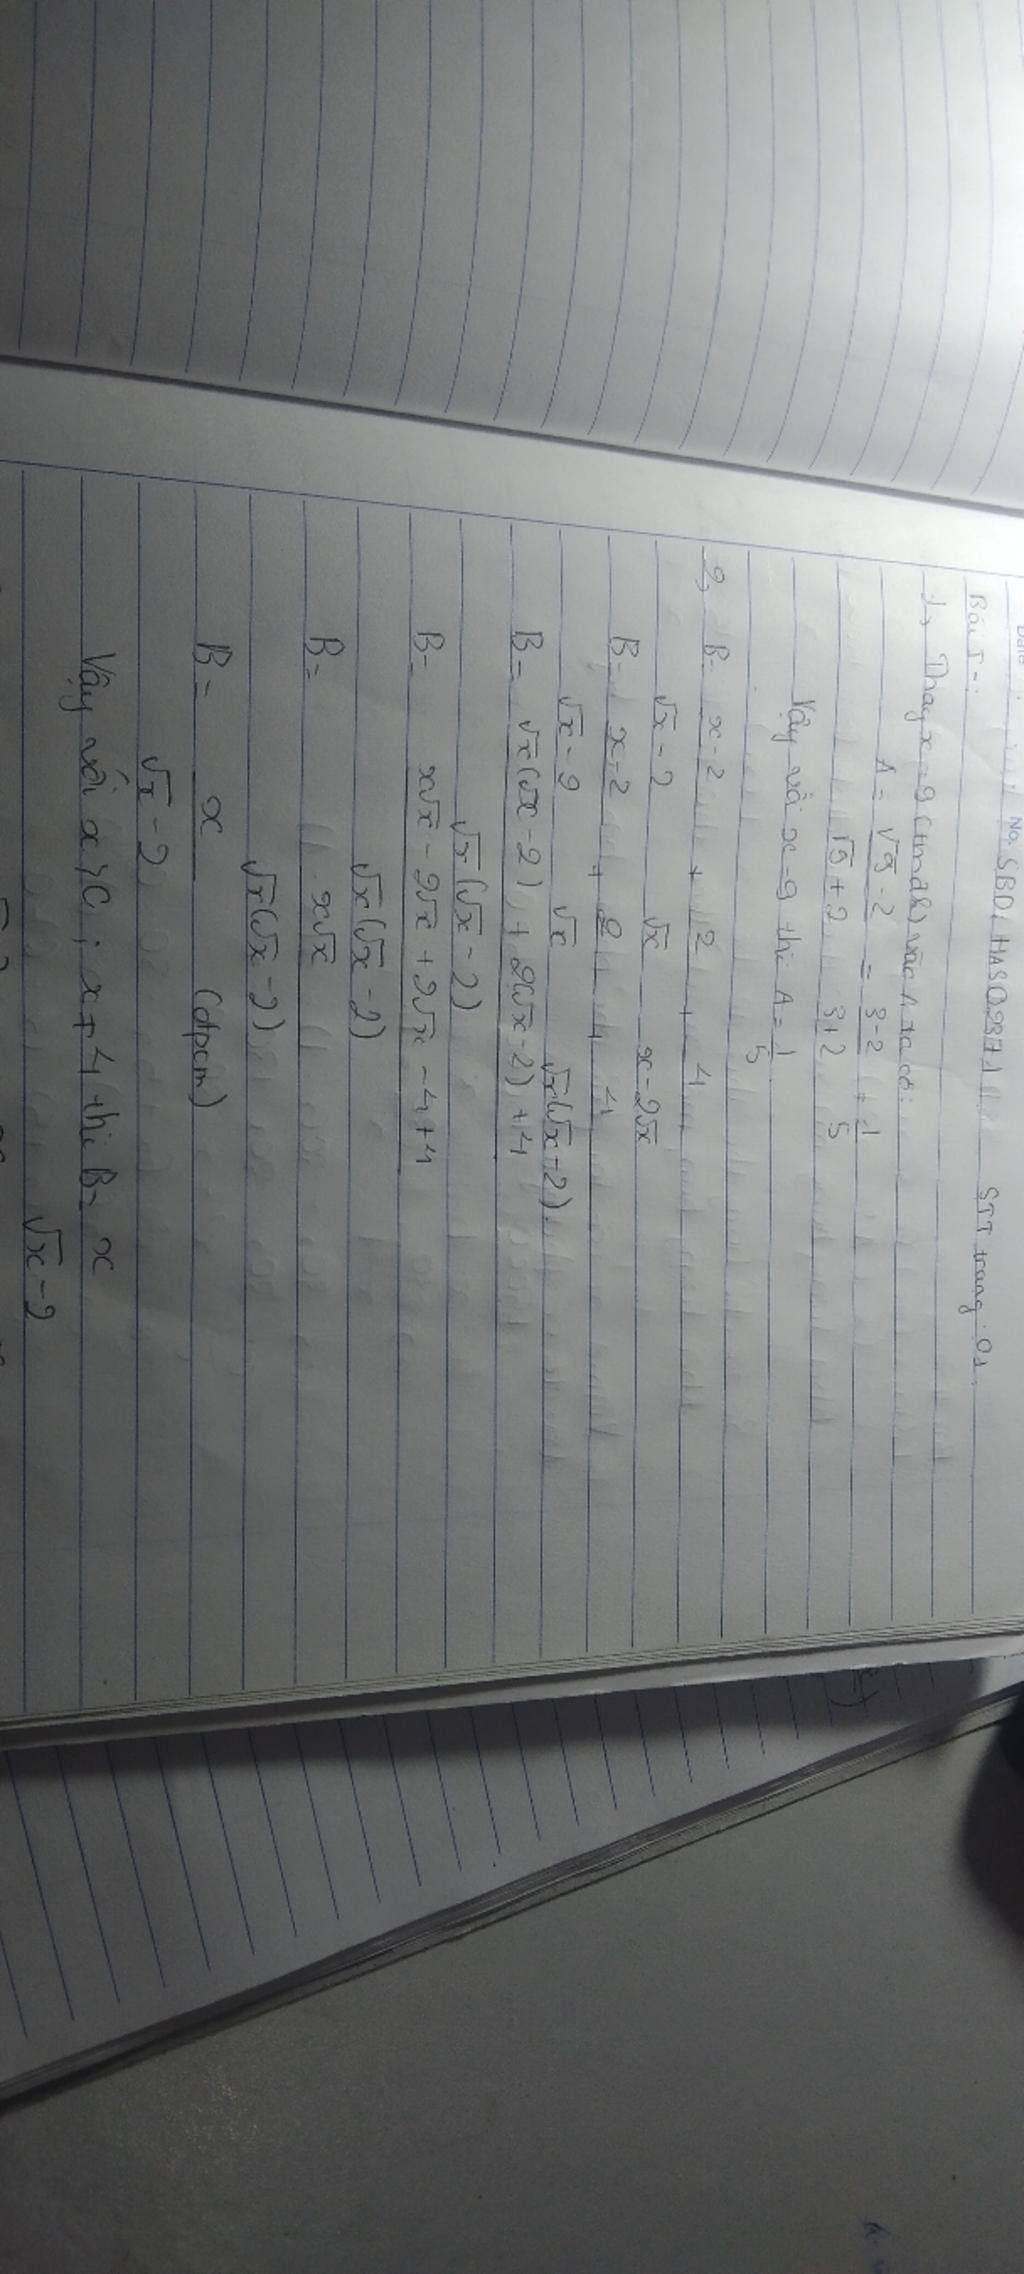 No. SBD: HAS02871 STT trang: 01
Bài I:
1, Thay x=9 (tmđk) vào A ta có:
A = √9 - 2 / √9 + 2 = 3-2 / 3+2 = 1/5
Vậy với x=9 thì A = 1/5
2, B = x-2 / √x - 2 + 2 / √x + 4 / x - 2√x
B = x-2 / √x - 2 + 2 / √x + 4 / √x(√x-2)
B = √x(√x-2) + 2(√x-2) + 4 / √x(√x-2)
B = x√x - 2√x + 2√x - 4 + 4 / √x(√x-2)
B = x√x / √x(√x-2)
B = x / √x - 2 (đpcm)
Vậy với x>0; x≠4 thì B = x / √x - 2